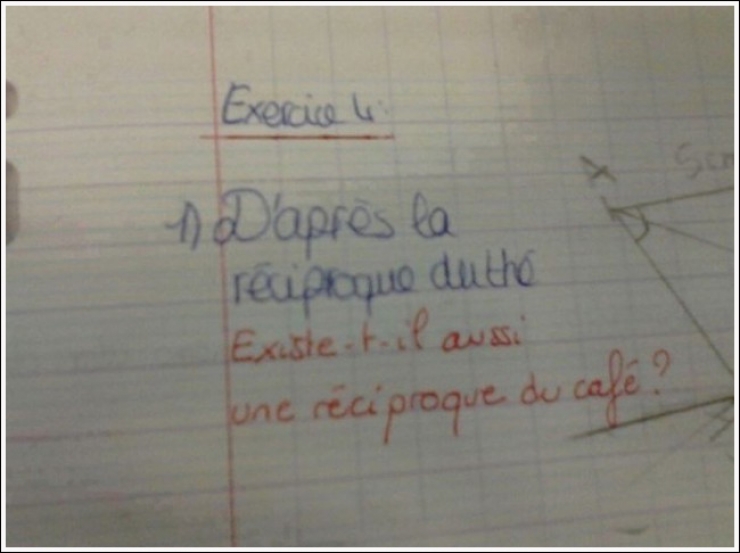 Exercice 4:
1) D'après la
réciproque du thé
Existe-t-il aussi
une réciproque du café?
x 5cm